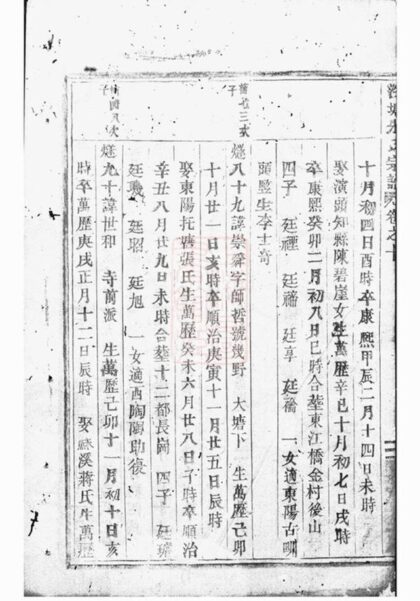 十月初四日酉時卒康熙甲辰二月十四日未時
娶演頭知縣陳碧崖女生萬歷辛巳十月初七日戌時
卒康熙癸卯二月初八日巳時合塟東江橋金村後山
四子 廷 廷 廷享 廷 一女適東陽古
頭監生李士奇
八十九諱崇舜字師哲號幾野 大塘下 生萬歷己卯
十月廿一日亥時卒順治庚寅十一月廿五日辰時
娶東陽托塘張氏生萬歷癸未六月廿八日子時卒順治
辛丑八月廿九日未時合塟十二都長崗 四子 廷
廷 廷昭 廷旭 一女適西陶陶助復
九十諱世和 寺前派 生萬歷己卯十一月初十日亥
時卒萬歷庚戌正月十二日辰時 娶 溪蔣氏生萬歷
宗譜 卷之十
三次
子
八次
子